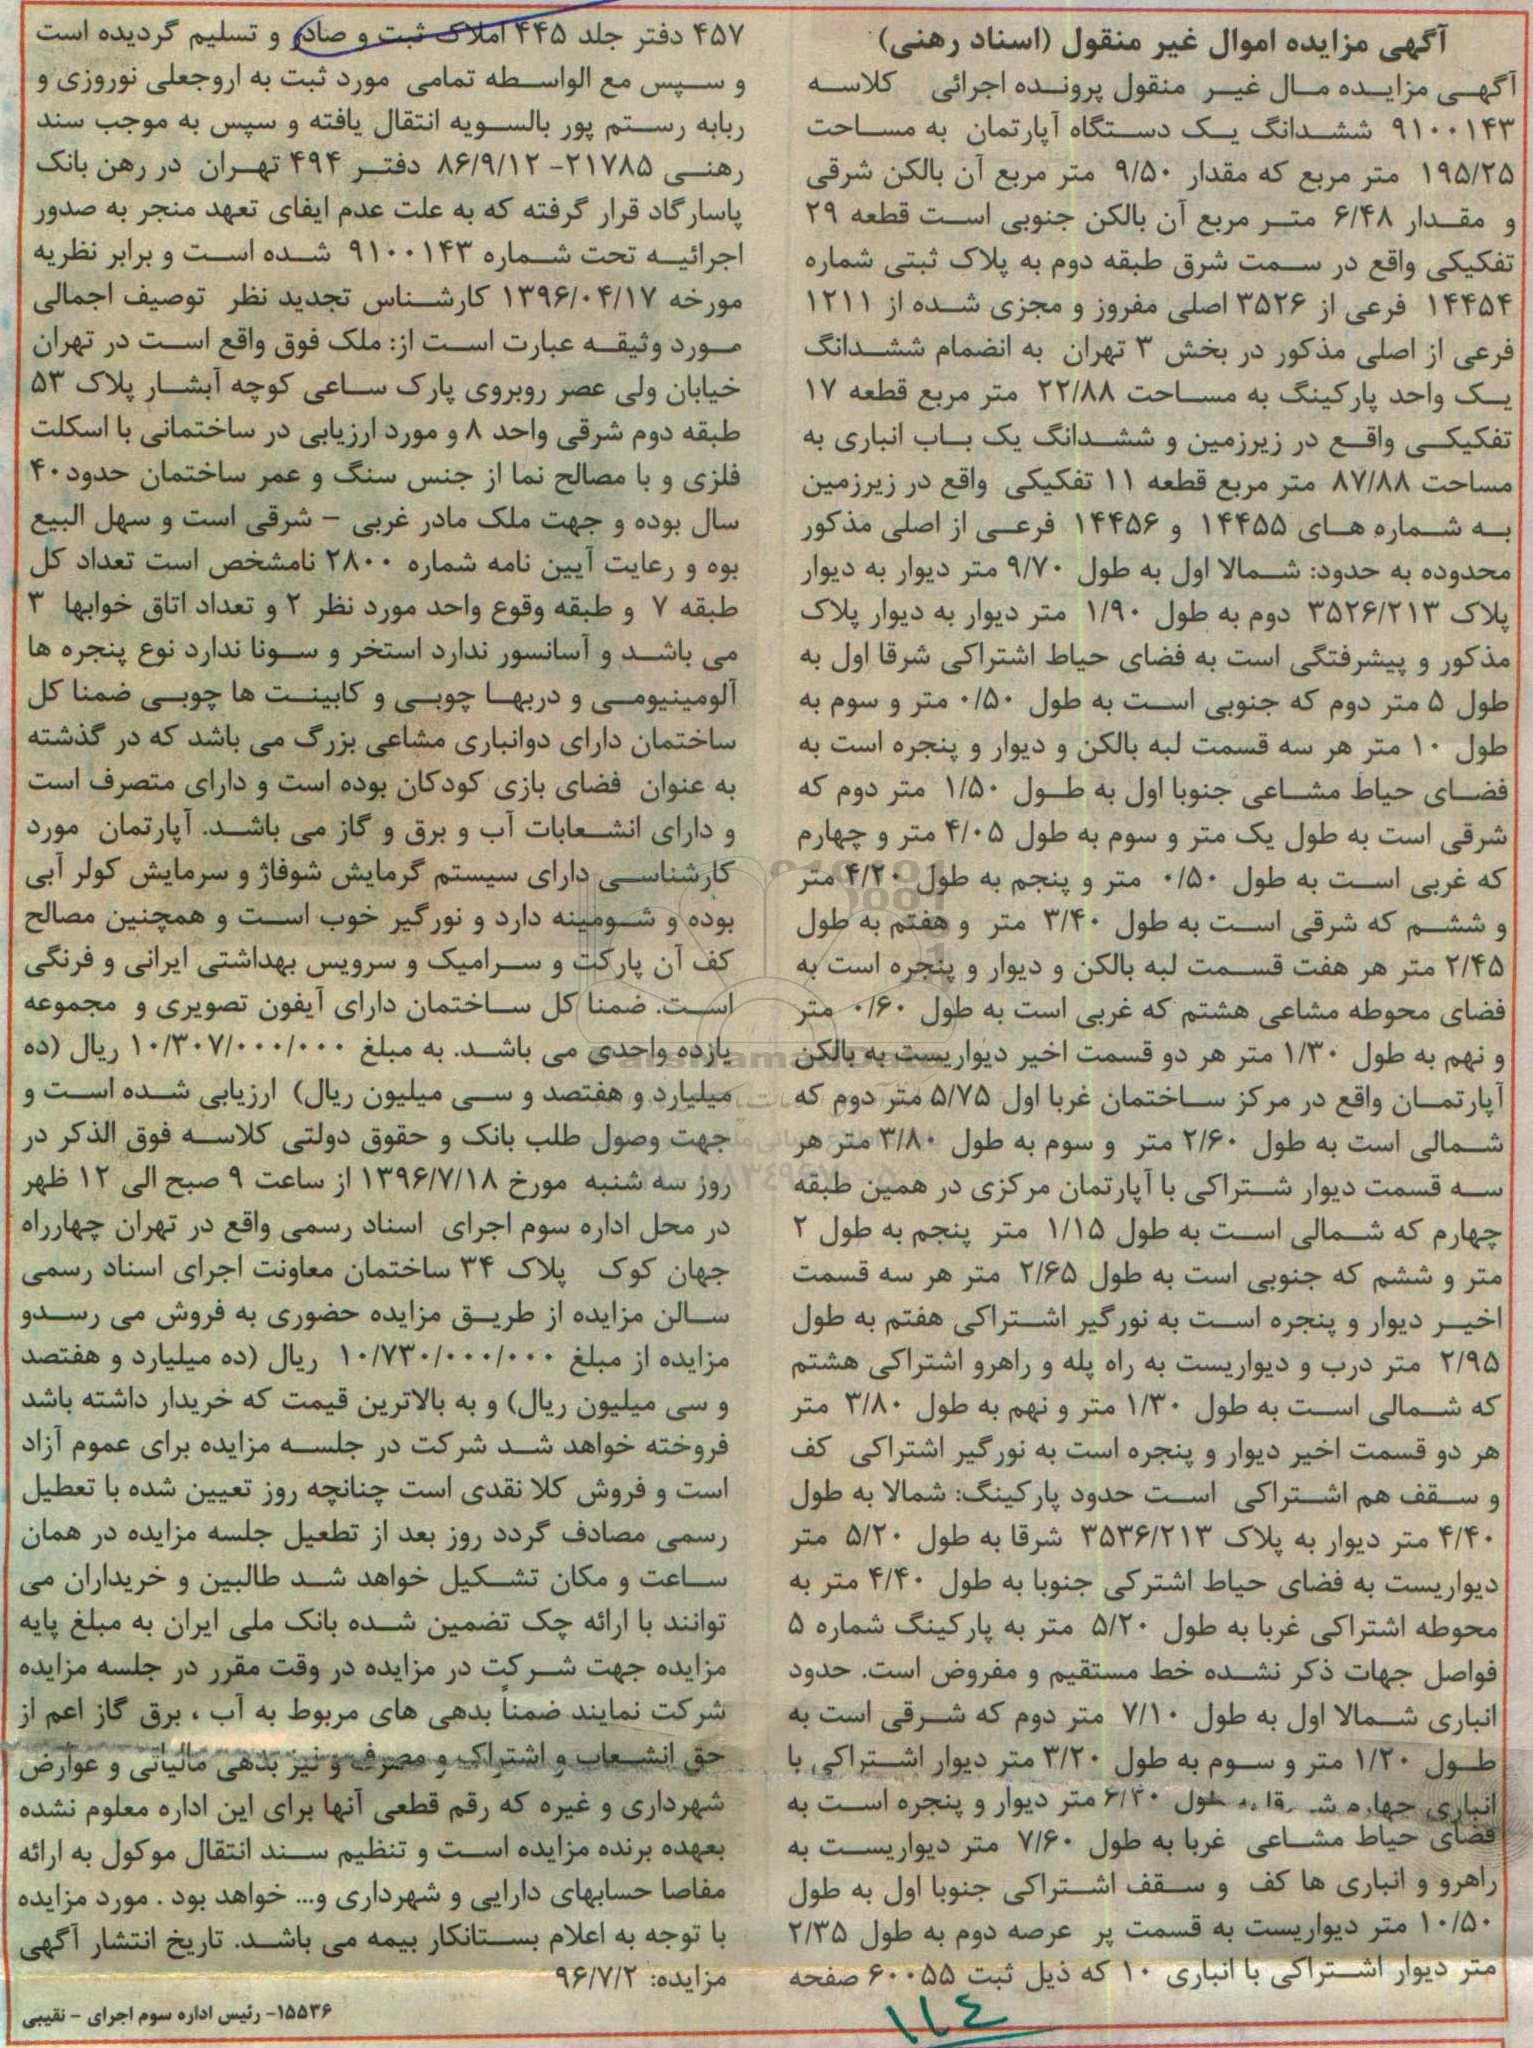 آگهی مزایده اموال غیر منقول (اسناد رهنی)
آگهی مزایده مال غیر منقول پرونده اجرائی کلاسه
۹۱۰۰۱۴۳ ششدانگ یک دستگاه آپارتمان به مساحت
۱۹۵/۲۵ متر مربع که مقدار ۹/۵۰ متر مربع آن بالکن شرقی
و مقدار ۶/۴۸ متر مربع آن بالکن جنوبی است قطعه ۲۹
تفکیکی واقع در سمت شرق طبقه دوم به پلاک ثبتی شماره
۱۴۴۵۴ فرعی از ۳۵۲۶ اصلی مفروز و مجزی شده از ۱۲۱۱
فرعی از اصلی مذکور در بخش ۳ تهران به انضمام ششدانگ
یک واحد پارکینگ به مساحت ۲۲/۸۸ متر مربع قطعه ۱۷
تفکیکی واقع در زیرزمین و ششدانگ یک باب انباری به
مساحت ۸۷/۸۸ متر مربع قطعه ۱۱ تفکیکی واقع در زیرزمین
به شماره های ۱۴۴۵۵ و ۱۴۴۵۶ فرعی از اصلی مذکور
محدوده به حدود: شمالا اول به طول ۹/۷۰ متر دیوار به دیوار
پلاک ۳۵۲۶/۲۱۳ دوم به طول ۱/۹۰ متر دیوار به دیوار پلاک
مذکور و پیشرفتگی است به فضای حیاط اشتراکی شرقا اول به
طول ۵ متر دوم که جنوبی است به طول ۰/۵۰ متر و سوم به
طول ۱۰ متر هر سه قسمت لبه بالکن و دیوار و پنجره است به
فضای حیاط مشاعی جنوبا اول به طول ۱/۵۰ متر دوم که
شرقی است به طول یک متر و سوم به طول ۴/۰۵ متر و چهارم
که غربی است به طول ۰/۵۰ متر و پنجم به طول ۴/۲۰ متر
و ششم که شرقی است به طول ۳/۴۰ متر و هفتم به طول
۲/۴۵ متر هر هفت قسمت لبه بالکن و دیوار و پنجره است به
فضای محوطه مشاعی هشتم که غربی است به طول ۰/۶۰ متر
و نهم به طول ۱/۳۰ متر هر دو قسمت اخیر دیواریست به بالکن
آپارتمان واقع در مرکز ساختمان غربا اول ۵/۷۵ متر دوم که
شمالی است به طول ۲/۶۰ متر و سوم به طول ۳/۸۰ متر هر
سه قسمت دیوار شتراکی با آپارتمان مرکزی در همین طبقه
چهارم که شمالی است به طول ۱/۱۵ متر پنجم به طول ۲
متر و ششم که جنوبی است به طول ۲/۶۵ متر هر سه قسمت
اخیر دیوار و پنجره است به نورگیر اشتراکی هفتم به طول
۲/۹۵ متر درب و دیواریست به راه پله و راهرو اشتراکی هشتم
که شمالی است به طول ۱/۳۰ متر و نهم به طول ۳/۸۰ متر
هر دو قسمت اخیر دیوار و پنجره است به نورگیر اشتراکی کف
و سقف هم اشتراکی است حدود پارکینگ: شمالا به طول
۴/۴۰ متر دیوار به پلاک ۳۵۳۶/۲۱۳ شرقا به طول ۵/۲۰ متر
دیواریست به فضای حیاط اشترکی جنوبا به طول ۴/۴۰ متر به
محوطه اشتراکی غربا به طول ۵/۲۰ متر به پارکینگ شماره ۵
فواصل جهات ذکر نشده خط مستقیم و مفروض است. حدود
انباری شمالا اول به طول ۷/۱۰ متر دوم که شرقی است به
طول ۱/۲۰ متر و سوم به طول ۳/۲۰ متر دیوار اشتراکی با
انباری چهارم شرقا به طول ۶/۳۰ متر دیوار و پنجره است به
فضای حیاط مشاعی غربا به طول ۷/۶۰ متر دیواریست به
راهرو و انباری ها کف و سقف اشتراکی جنوبا اول به طول
۱۰/۵۰ متر دیواریست به قسمت پر عرصه دوم به طول ۲/۳۵
متر دیوار اشتراکی با انباری ۱۰ که ذیل ثبت ۶۰۰۵۵ صفحه
۴۵۷ دفتر جلد ۴۴۵ املاک ثبت و صادر و تسلیم گردیده است
و سپس مع الواسطه تمامی مورد ثبت به اروجعلی نوروزی و
ربابه رستم پور بالسویه انتقال یافته و سپس به موجب سند
رهنی ۲۱۷۸۵- ۸۶/۹/۱۲ دفتر ۴۹۴ تهران در رهن بانک
پاسارگاد قرار گرفته که به علت عدم ایفای تعهد منجر به صدور
اجرائیه تحت شماره ۹۱۰۰۱۴۳ شده است و برابر نظریه
مورخه ۱۳۹۶/۰۴/۱۷ کارشناس تجدید نظر توصیف اجمالی
مورد وثیقه عبارت است از: ملک فوق واقع است در تهران
خیابان ولی عصر روبروی پارک ساعی کوچه آبشار پلاک ۵۳
طبقه دوم شرقی واحد ۸ و مورد ارزیابی در ساختمانی با اسکلت
فلزی و با مصالح نما از جنس سنگ و عمر ساختمان حدود ۴۰
سال بوده و جهت ملک مادر غربی – شرقی است و سهل البیع
بوه و رعایت آیین نامه شماره ۲۸۰۰ نامشخص است تعداد کل
طبقه ۷ و طبقه وقوع واحد مورد نظر ۲ و تعداد اتاق خوابها ۳
می باشد و آسانسور ندارد استخر و سونا ندارد نوع پنجره ها
آلومینیومی و دربها چوبی و کابینت ها چوبی ضمنا کل
ساختمان دارای دوانباری مشاعی بزرگ می باشد که در گذشته
به عنوان فضای بازی کودکان بوده است و دارای متصرف است
و دارای انشعابات آب و برق و گاز می باشد. آپارتمان مورد
کارشناسی دارای سیستم گرمایش شوفاژ و سرمایش کولر آبی
بوده و شومینه دارد و نورگیر خوب است و همچنین مصالح
کف آن پارکت و سرامیک و سرویس بهداشتی ایرانی و فرنگی
است. ضمنا کل ساختمان دارای آیفون تصویری و مجموعه
یازده واحدی می باشد. به مبلغ ۱۰/۳۰۷/۰۰۰/۰۰۰ ریال (ده
میلیارد و هفتصد و سی میلیون ریال) ارزیابی شده است و
جهت وصول طلب بانک و حقوق دولتی کلاسه فوق الذکر در
روز سه شنبه مورخ ۱۳۹۶/۷/۱۸ از ساعت ۹ صبح الی ۱۲ ظهر
در محل اداره سوم اجرای اسناد رسمی واقع در تهران چهارراه
جهان کوک پلاک ۳۴ ساختمان معاونت اجرای اسناد رسمی
سالن مزایده از طریق مزایده حضوری به فروش می رسدو
مزایده از مبلغ ۱۰/۷۳۰/۰۰۰/۰۰۰ ریال (ده میلیارد و هفتصد
و سی میلیون ریال) و به بالاترین قیمت که خریدار داشته باشد
فروخته خواهد شد شرکت در جلسه مزایده برای عموم آزاد
است و فروش کلا نقدی است چنانچه روز تعیین شده با تعطیل
رسمی مصادف گردد روز بعد از تطعیل جلسه مزایده در همان
ساعت و مکان تشکیل خواهد شد طالبین و خریداران می
توانند با ارائه چک تضمین شده بانک ملی ایران به مبلغ پایه
مزایده جهت شرکت در مزایده در وقت مقرر در جلسه مزایده
شرکت نمایند ضمناً بدهی های مربوط به آب ، برق گاز اعم از
حق انشعاب و اشتراک و مصرف و نیز بدهی مالیاتی و عوارض
شهرداری و غیره که رقم قطعی آنها برای این اداره معلوم نشده
بعهده برنده مزایده است و تنظیم سند انتقال موکول به ارائه
مفاصا حسابهای دارایی و شهرداری و... خواهد بود . مورد مزایده
با توجه به اعلام بستانکار بیمه می باشد. تاریخ انتشار آگهی
مزایده: ۹۶/۷/۲
۱۵۵۳۶- رئیس اداره سوم اجرای – نقیبی
۱۱۴